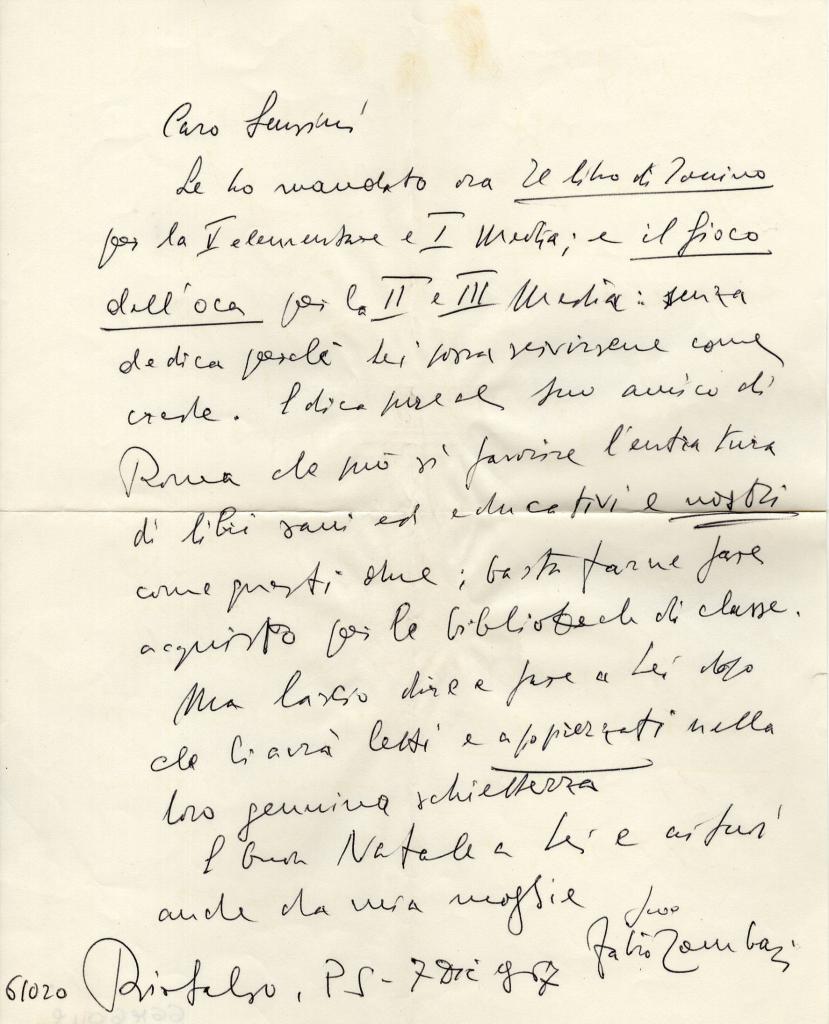 Caro Sensini
Le ho mandato ora Il libro di Tonino
per la V elementare e I Media; e il gioco
dell'oca per la II e III Media: senza
dedica perché Lei possa servirsene come
crede. E dica pure al Suo amico di
Roma che può si favorire l'entratura
di libri sani ed educativi e nostri
come questi due; basta farne fare
acquisto per le biblioteche di classe.
Ma lascio dire e fare a Lei dopo
che li avrà letti e apprezzati nella
loro genuina schiettezza
E buon Natale a Lei e ai suoi
anche da mia moglie
Suo
Fabio Tombari
61020 Rio Salso, PS - 7 Dic